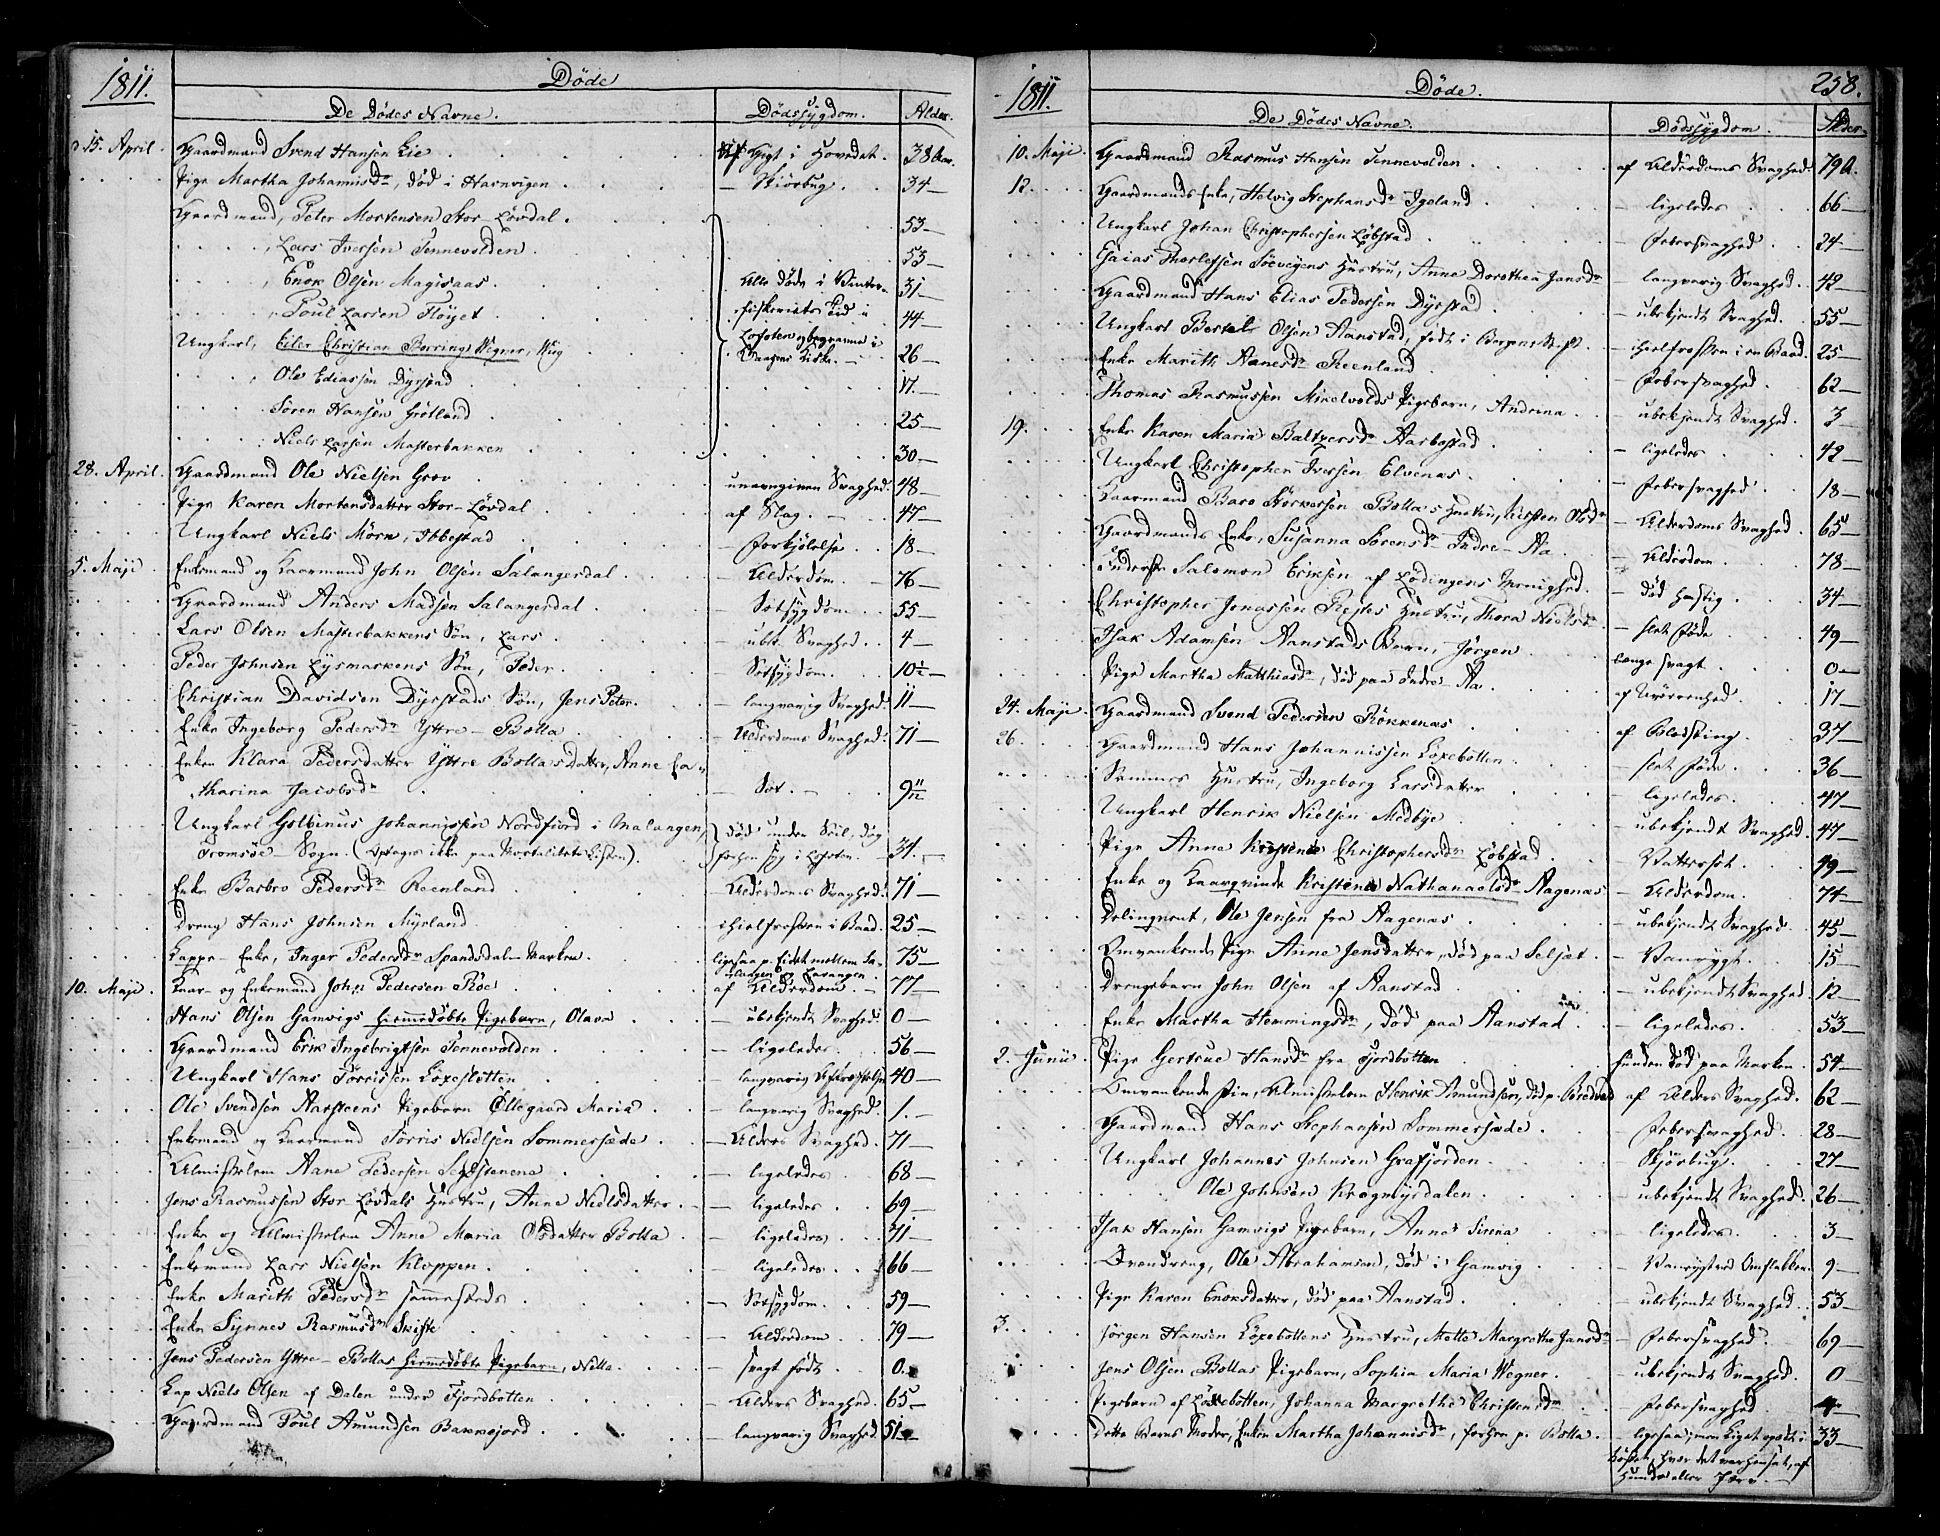 1811.
Døde
De Dødes Navne.
Dødssygdom.
Alder.
15. April. Gaardmand Svend Hansen Lie . Af Gigt i Hovedet. 38 Aar.
Pige Martha Johannisdr, død i Havnvigen . — Skiörbug. 34 —
Gaardmand, Peter Mortensen Stor-Lövdal. 53 —
Lars Iversen Tennevolden. 53 —
Enok Olsen Magisaas. Alle døde i Vinter- 31 —
Poul Larsen Floget. fiskeriets Tid i 44 —
Ungkarl, Eiler Christian Borring Wegner, Lofoten og begravne i 26 —
Ole Ediassen Dyrstad Vaagens Kirke. — 17. —
Sören Hansen Grötland 25 —
Niels Larsen Masterbakken 30 —
28. April. Gaardmand Ole Nielsen Grov unavngiven Svaghed. 48 —
Pige Karen Mortensdatter Stor-Lövdal af Slag. — 47 —
Ungkarl Niels Mörk, Ibbestad — Forkjölelse 18 —
5. Maji. Enkemand og Kaarmand John Olsen Salangerdal — Alderdom. 76 —
Gaardmand Anders Madsen Salangerdal — Sotsygdom 55 —
Lars Olsen Masterbakkens Sön, Lars — ubk. Svaghed. 4 —
Peder Johnsen Lysmarkens Sön, Peder. — Sotsygdom. 10½ —
Christian Davidsen Dyrstads Sön, Jens Peter. — langvarig Svaghed 11 —
Enke Ingeborg Pedersdr Yttre-Bolla — Alderdoms Svaghed. 71 —
Enken Klara Pedersdatter Yttre Bollas Datter, Anne Ca-
tharina Jacobsdr — Sot. — 9 11/12
Ungkarl Golbinus Johannissen Nordfiord i Malangen, død under Seil, dog
Tromsöe-Sogn. (Optages ikke paa Mortalitets Listen). forhen syg i Lofoten. — 34. —
Enke Barbro Pedersdr Reenland — Alderdoms Svaghed. 71 —
Dreng Hans Johnsen Myrland. ihielfrossen i Baad. 25 —
Lappe-Enke, Inger Pedersdr Spandsdal-Marken ligesaa p. Eidet mellem Sa- 75 —
langen og Lavangen.
10. Maji. Kaar- og Enkemand John Pedersen Röe af Alderdom. — 77 —
Hans Olsen Gamvigs hjemmedöbte Pigebarn, Olava — ubekjendt Svaghed. 0 —
Gaardmand Erik Ingebrigtsen Tennevolden — ligeledes. 56 —
Ungkarl Hans Törrissen Löxebotten — langvarig Afkræftelse 40 —
Ole Svendsen Aarsteens Pigebarn Ollegaard Maria — langvarig Svaghed. 1. —
Enkemand og Kaarmand Törris Nielsen Sommersæde — Alders Svaghed. 71 —
Almisselem Aane Pedersen — ligeledes 68 —
Jens Rasmussen Stor Lövdals Hustru, Anne Nielsdatter — ligeledes 69 —
Enke og Almisselem Anne Maria Olsdatter Bolla — ligeledes 71 —
Enkemand Lars Nielsen Kloppen. — ligeledes. 66 —
Enke Marith Pedersdr sammesteds — Sotsygdom. 59 —
Enke Synnev Rasmusdr Skifte — Alderdom 79 —
Jens Pedersen Yttre-Bollas hjemmedöbte Pigebarn, Nilla. — svagt født 0. —
Lap Niels Olsen af Dalen under Fjordbotten — Alders Svaghed. 65 —
Gaardmand Poul Amundsen Bakkejord — langvarig Svaghed. 51 —
258.
1811.
Døde.
De Dødes Navne.
Dødssygdom.
Alder.
10. Maji. Gaardmand Rasmus Hansen Tennevolden af Alderdoms Svaghed. 79 A.
12. Gaardmands Enke, Helvig Stephansdr Igeland — ligeledes 66 —
Ungkarl Johan Christophersen Löbstad — Febersvaghed 24 —
Esaias Thorlefsen Söevegens Hustru, Anne Dorothea Jansdr — langvarig Svaghed. 42 —
Gaardmand Hans Elias Pedersen Dyrstad — ubekjendt Svaghed. 55 —
Ungkarl Bertel Olsen Aanstad, født i Bergens Stift — ihielfrossen i en Baad. 25 —
Enke Marith Aanesdr Reenland — Febersvaghed. 62 —
Thomas Rasmussen Mikelvolds Pigebarn, Andrina — ubekjendt Svaghed. 3
19. Enke Karen Maria Baltzersdr Aarbostad — ligeledes 42 —
Ungkarl Christopher Iversen Elvenæs. — Febersvaghed. 18 —
Kaarmand Baro Störkersen Bollas Hustru, Kirsten Olsdr — Alderdoms Svaghed. 65 —
Gaardmands Enke, Susanna Sörensdr Indre-Aa — Alderdom. 78 —
Salomon Eriksen af Lödingens Menighed. — død hastig. 34 —
Christopher Jonassen Hustru, Thora Nielsdr — slet Föde 49 —
Isak Adamsen Aanstads Barn, Jörgen længe svagt 0 —
Pige Martha Matthiasdr, død paa Indre-Aa. af 17 —
24. Maji. Gaardmand Svend Pedersen Rökkenæs. af Blodsting. 37 —
26. Gaardmand Hans Johannissen Löxebotten. — slet Föde. 36 —
Sammes Hustru, Ingeborg Larsdatter — ligeledes. 47 —
Ungkarl Henrik Nielsen Medbye — ubekjendt Svaghed. 47 —
Pige Anne Kirstine Christophersdr Löbstad — Vattersot. 49 —
Enke og Kaarqvinde Kristina Nathanaelsdr Aagenæs — Alderdom. 74 —
Delinqvent, Ole Jensen fra Aagenæs — ubekjendt Svaghed. 45 —
Omvankende Pige Anne Jensdatter, død paa Selset. — Vanrygt. 15 —
Drengebarn John Olsen af Aanstad — ubekjendt Svaghed. 12 —
Enke Martha Hemmingsdr, død paa Aanstad. — ligeledes. 53 —
2. Junii. Pige Gertrue Hansdr fra Fjordbotten funden død paa Marken. 54 —
Omvankende Almisselem Henrik Amundsen, død p. Bredvad af Alders Svaghed. 62 —
Gaardmand Hans Stephansen Sommersæde. — Febersvaghed. 28 —
Ungkarl Johannes Johnsen Grafjorden. — Skjörbug. 27 —
Ole Johnsen Krogmyrdalen. — ubekjendt Svaghed. 26 —
Isak Hansen Gamvigs Pigebarn, Anne Sirena — ligeledes. 3 —
Ole Abrahamsen, død i Gamvig — Vanrygt ved Omflakken 9 —
Pige Karen Enoksdatter, død paa Aanstad. — ubekjendt Svaghed. 53 —
3. Jörgen Hansen Löxebottens Hustru, Mette Margretha Jansdr — Febersvaghed. 69 —
Jens Olsen Bollas Pigebarn, Sophia Maria Wegner. — ubekjendt Svaghed. 0 —
Pigebarn af Löxebotten, Johanna Margretha Christensdr — Febersvaghed 4 —
Dette Barns Moder, Enken Martha Johannisdr, forhen p. Bolla. — ligesaa; men Liget opædt i 33 —
hvor det var hensat, af
Hunde eller Jerv. —